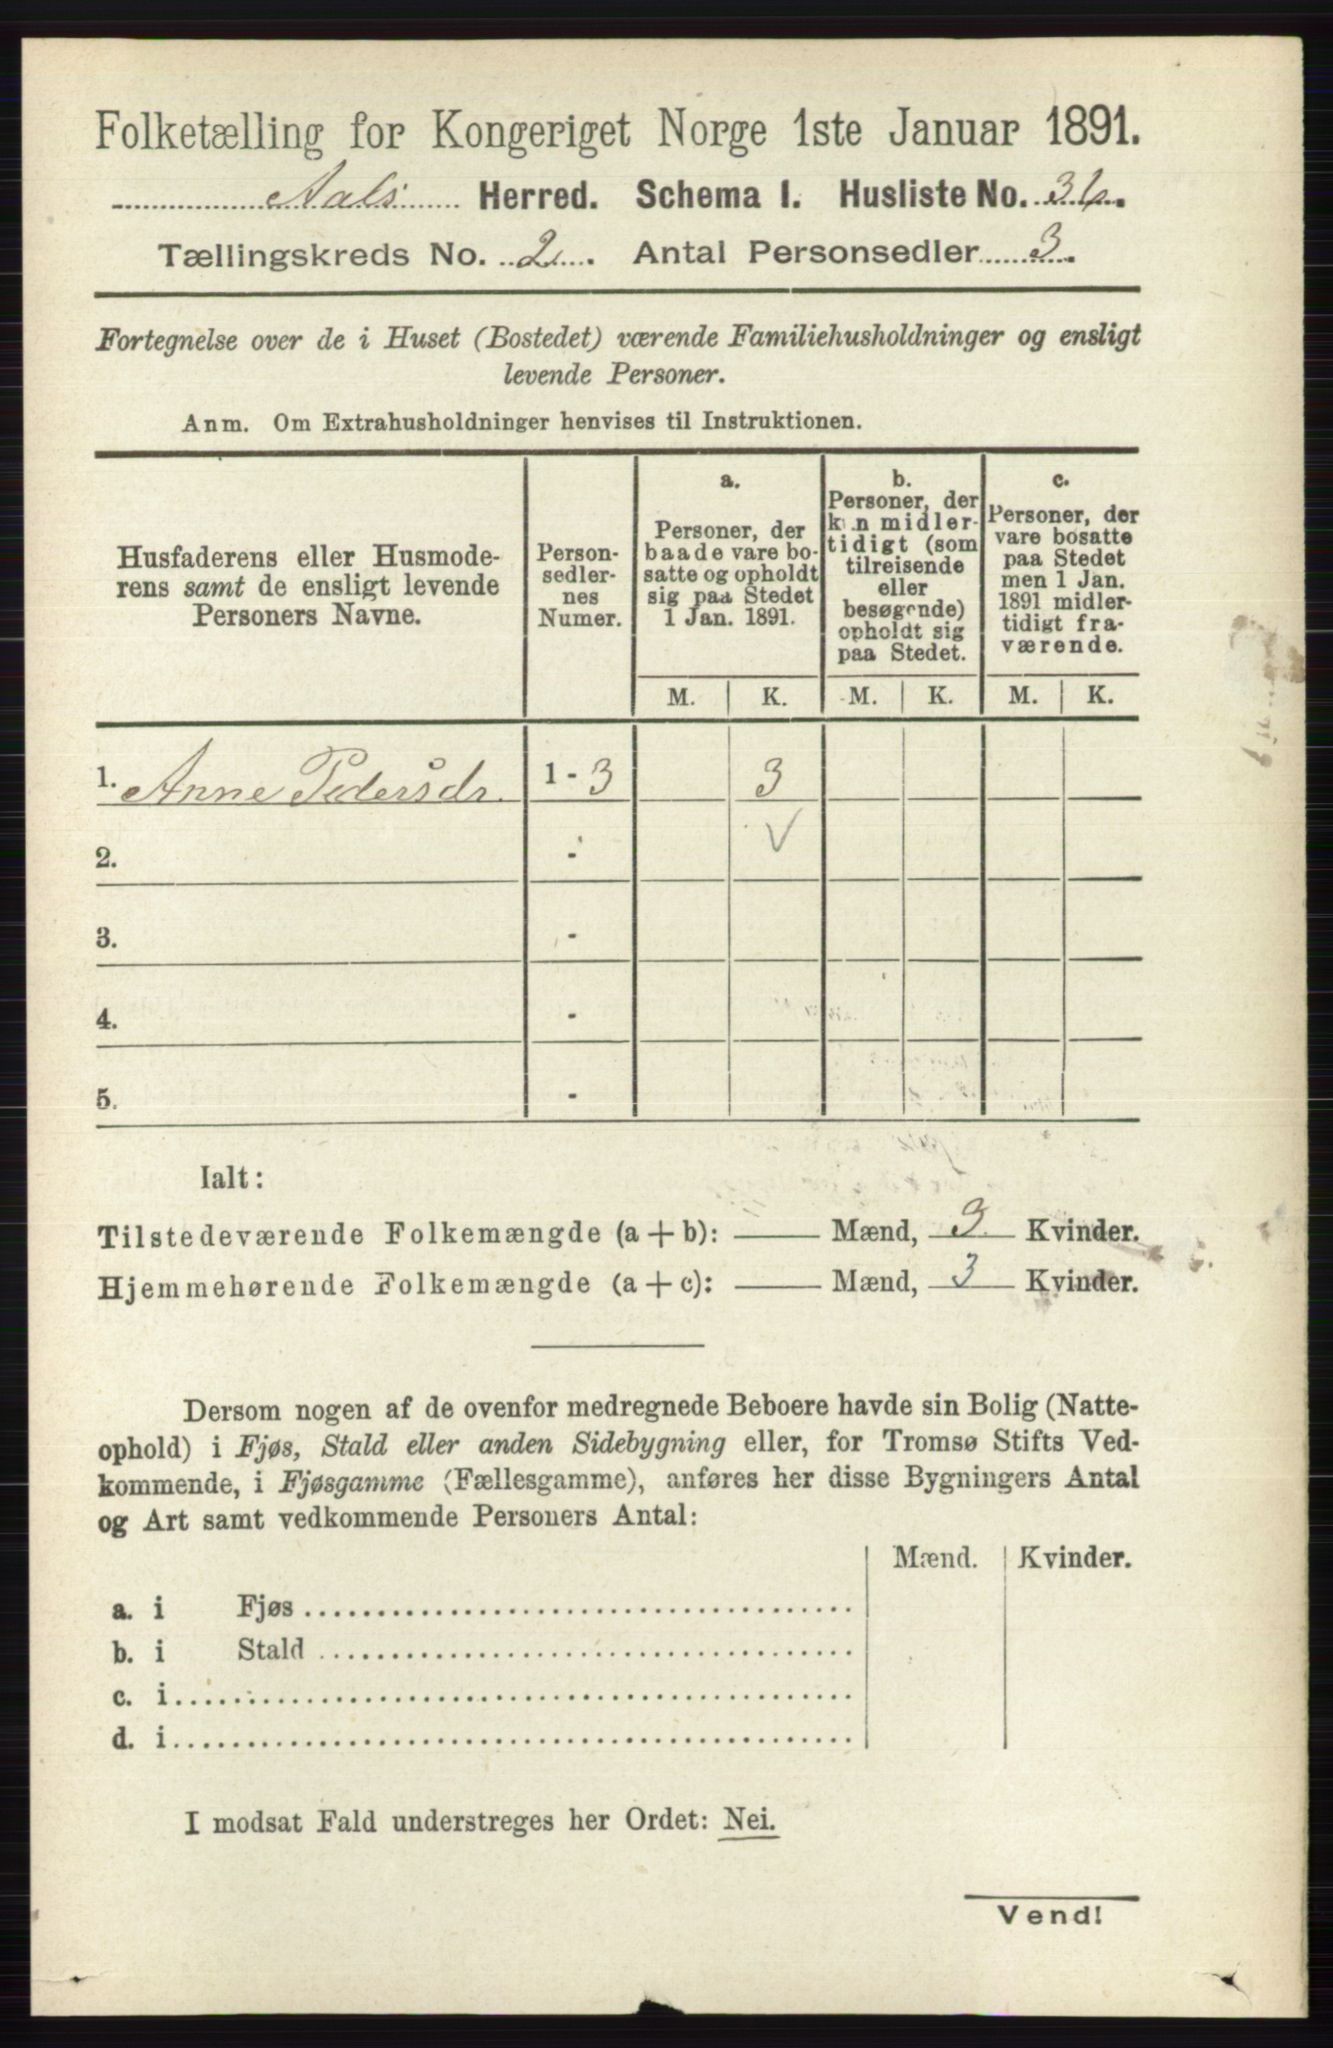 Folketælling for Kongeriget Norge 1ste Januar 1891.
Aals Herred. Schema I. Husliste No. 36.
Tællingskreds No. 2. Antal Personsedler 3.
Fortegnelse over de i Huset (Bostedet) værende Familiehusholdninger og ensligt
levende Personer.
Anm. Om Extrahusholdninger henvises til Instruktionen.
Husfaderens eller Husmode-
rens samt de ensligt levende
Personers Navne.
Person-
sedler-
nes
Numer.
a.
Personer, der
baade vare bo-
satte og opholdt
sig paa Stedet
1 Jan. 1891.
b.
Personer, der
kun midler-
tidigt (som
tilreisende
eller
besøgende)
opholdt sig
paa Stedet.
c.
Personer, der
vare bosatte
paa Stedet
men 1 Jan.
1891 midler-
tidigt fra-
værende.
M. K. M. K. M. K.
1. Anne Pedersdr. 1 - 3 3
2. - V
3. -
4. -
5. -
Ialt:
Tilstedeværende Folkemængde (a + b): — Mænd, 3 Kvinder.
Hjemmehørende Folkemængde (a + c): — Mænd, 3 Kvinder.
Dersom nogen af de ovenfor medregnede Beboere havde sin Bolig (Natte-
ophold) i Fjøs, Stald eller anden Sidebygning eller, for Tromsø Stifts Ved-
kommende, i Fjøsgamme (Fællesgamme), anføres her disse Bygningers Antal
og Art samt vedkommende Personers Antal:
Mænd. Kvinder.
a. i Fjøs
b. i Stald
c. i
d. i
I modsat Fald understreges her Ordet: Nei.
Vend!